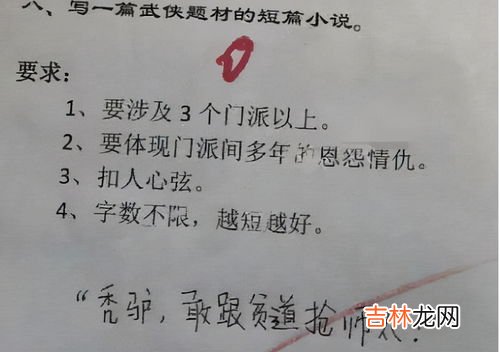 八、写一篇武侠题材的短篇小说。
0
要求：
1、要涉及 3 个门派以上。
2、要体现门派间多年的恩怨情仇。
3、扣人心弦。
4、字数不限，越短越好。
“秃驴，敢跟贫道抢师太.
吉林龙网